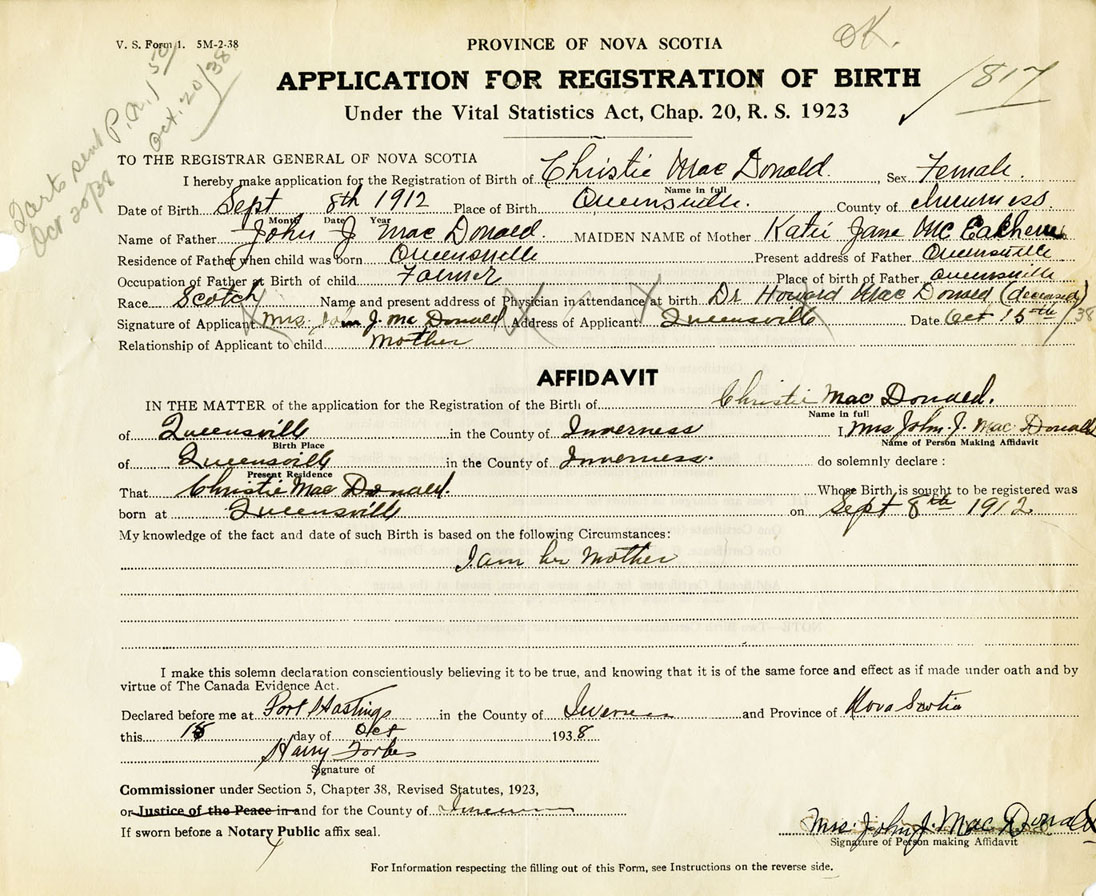 V. S. Form 1. 5M-2-38
PROVINCE OF NOVA SCOTIA
OK.
APPLICATION FOR REGISTRATION OF BIRTH
1817
Under the Vital Statistics Act, Chap. 20, R. S. 1923
sent P.N. 1 50
Oct. 20/38
Oct 20/38
TO THE REGISTRAR GENERAL OF NOVA SCOTIA
I hereby make application for the Registration of Birth of Christie Mac Donald. , Sex Female.
Name in full
Date of Birth Sept 8th 1912 Place of Birth Queensville. County of Inverness.
Month Date Year
Name of Father John J Mac Donald. MAIDEN NAME of Mother Katie Jane Mc Eachern
Residence of Father when child was born Queensville Present address of Father Queensville
Occupation of Father at Birth of child Farmer Place of birth of Father Queensville
Race Scotch Name and present address of Physician in attendance at birth Dr Howard Mac Donald (deceased)
Signature of Applicant Mrs. John J. Mc Donald Address of Applicant: Queensville Date Oct 15th/38
Relationship of Applicant to child mother
AFFIDAVIT
IN THE MATTER of the application for the Registration of the Birth of Christie Mac Donald.
Name in full
of Queensville in the County of Inverness I, Mrs John J. Mac Donald
Birth Place Name of Person Making Affidavit
of Queensville in the County of Inverness. do solemnly declare :
Present Residence
That Christie Mac Donald. Whose Birth is sought to be registered was
born at Queensville on Sept 8th 1912
My knowledge of the fact and date of such Birth is based on the following Circumstances:
I am her mother
I make this solemn declaration conscientiously believing it to be true, and knowing that it is of the same force and effect as if made under oath and by
virtue of The Canada Evidence Act.
Declared before me at Port Hastings in the County of Inverness and Province of Nova Scotia
this 15 day of Oct 1938
Harry Forbes
Signature of
Commissioner under Section 5, Chapter 38, Revised Statutes, 1923,
or Justice of the Peace in and for the County of Inverness
If sworn before a Notary Public affix seal.
Mrs. John J. Mac Donald
Signature of Person making Affidavit
For Information respecting the filling out of this Form, see Instructions on the reverse side.